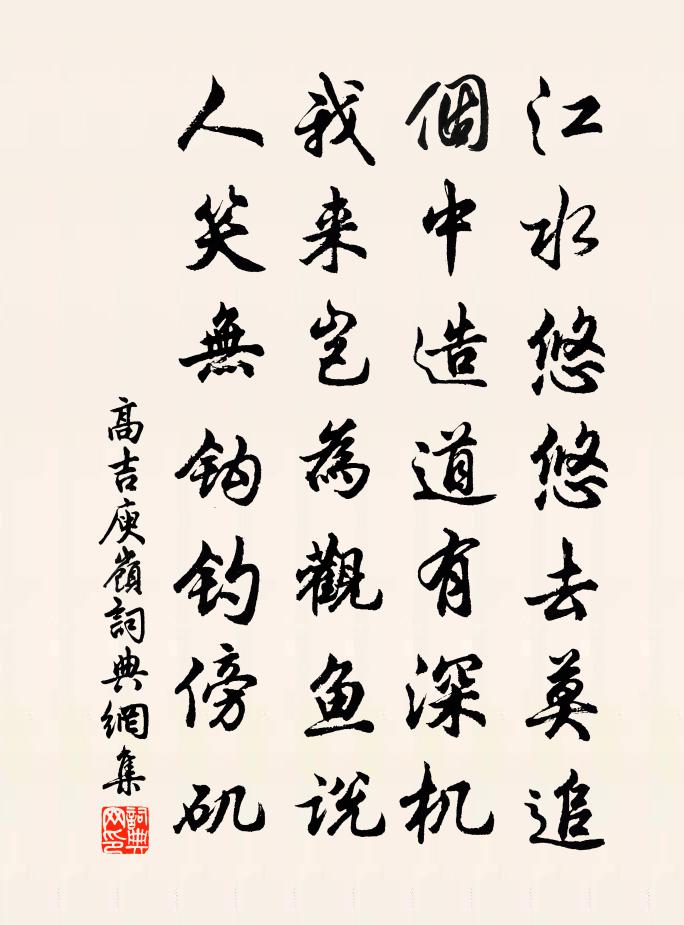 江水悠悠去莫追
個中造道有深机
我来豈為觀鱼説
人笑無鈎钓傍矶
高吉庾嶺詞典網集
詞典网印